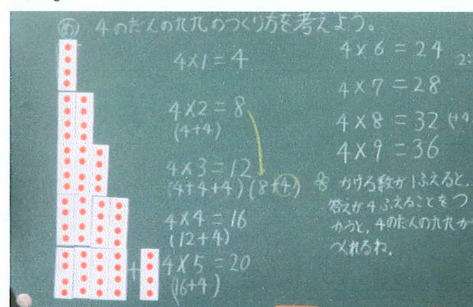 め 4のだんの九九のつくり方を考えよう。
4×1=4
4×2=8
(4+4)
4×3=12
(4+4+4)(8+4)
4×4=16
(12+4)
+
4×5=20
(16+4)
4×6=24
4×7=28
4×8=32
4×9=36
かける数が1ふえると、
答えが4ふえることをつ
かうと、4のだんの九九が
つくれるね。